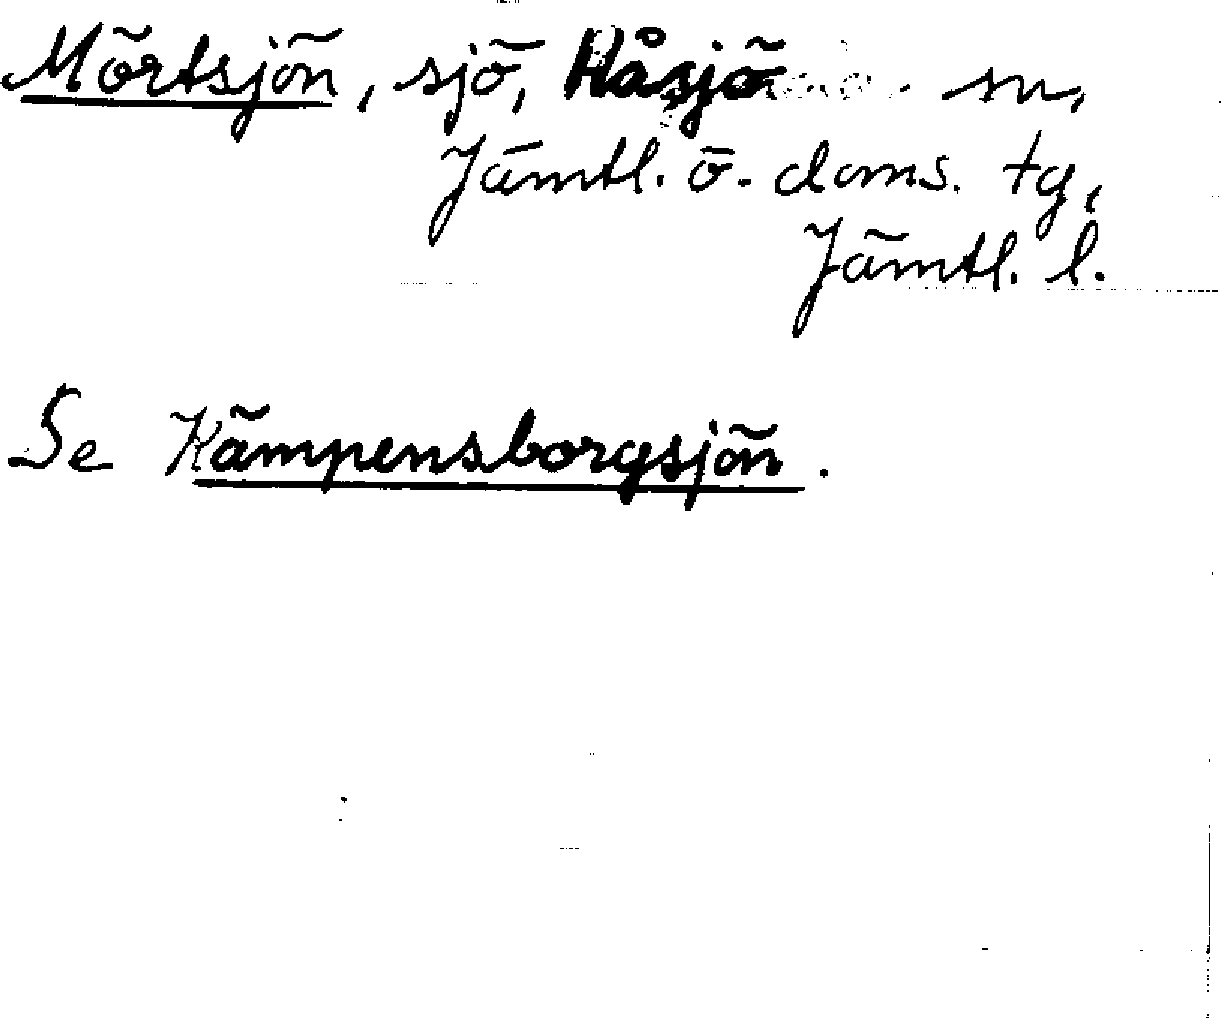 Mörtsjön, sjö, Håsjö sn,
Jämtl. ö. doms. tg,
Jämtl. l.
Se Kämpensborgsjön.